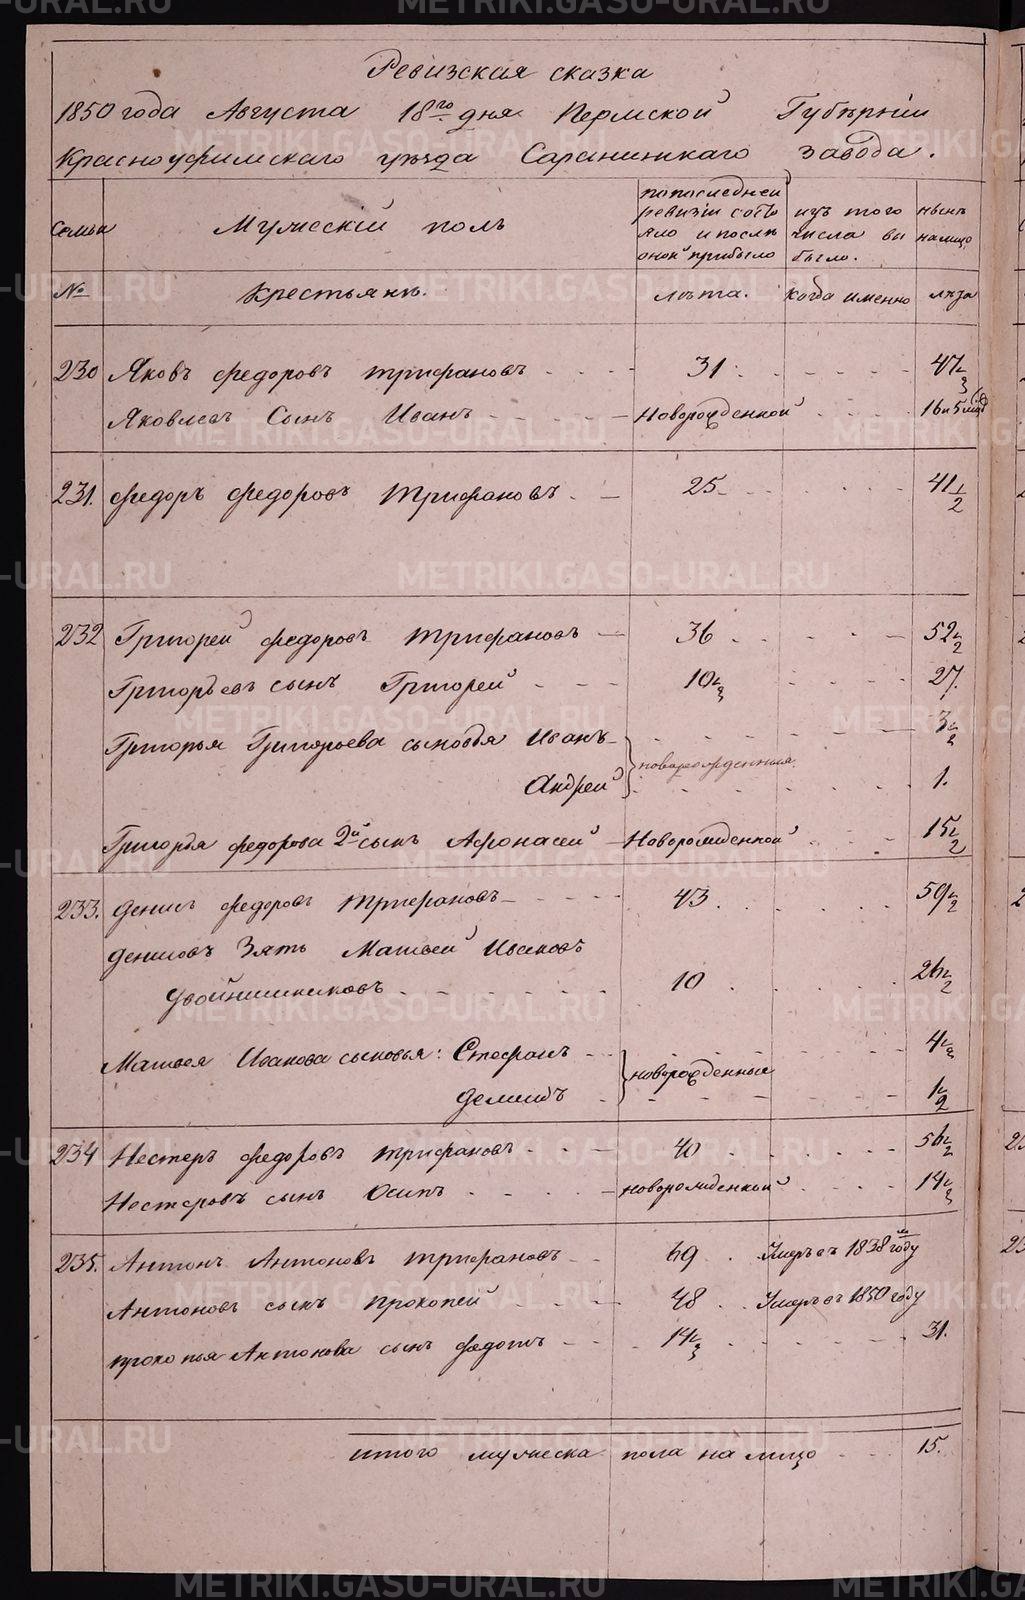 Ревизская сказка
1850 года Августа 18го дня Пермской Губѣрніи
Красноуфимскаго уѣзда Саранинскаго завода.
Семьи
Мужескій полъ
по последней ревизіи состояло и после оной прибыло
изъ того числа выбыло.
нынѣ на лицо
№ Крестьянѣ. лѣта. когда именно лѣта
230 Яковъ федоровъ трифановъ 31 47
Яковлевъ Сынъ Иванъ Новорожденной 16
231. федоръ федоровъ трифановъ 25 41 1/2
232 Григорей федоровъ трифановъ 36 52 1/2
Григорьевъ сынъ Григорей 10 27.
Григорья Григорьева сыновья Иванъ 3
Андрей новорожденныя 1.
Григорья федорова 2й сынъ Афонасей Новорожденной 15 1/2
233. денисъ федоровъ трифановъ 43 59 1/2
денисовъ Зять Матвей Ивановъ
двойнишниковъ 10 26 1/2
Матвея Иванова сыновья: Стефанъ 4
демидъ новорожденные 1 1/2
234 Нестеръ федоровъ трифановъ 40 56 1/2
Нестеровъ сынъ Осипъ новорожденной 14
235. Антонъ Антоновъ трифановъ 69 Умеръ въ 1838м году
Антоновъ сынъ прокопей 48 Умеръ въ 1850 году
прокопья Антонова сынъ федотъ 14 31.
итого мужеска пола на лицо 15.
METRIKI.GASO-URAL.RU